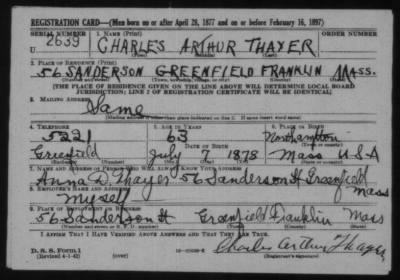 REGISTRATION CARD—(Men born on or after April 28, 1877 and on or before February 16, 1897)
SERIAL NUMBER 1. NAME (Print) ORDER NUMBER
U 2639 CHARLES ARTHUR THAYER
(First) (Middle) (Last)
2. PLACE OF RESIDENCE (Print)
56 SANDERSON GREENFIELD FRANKLIN MASS.
(Number and street) (Town, township, village, or city) (County) (State)
[THE PLACE OF RESIDENCE GIVEN ON THE LINE ABOVE WILL DETERMINE LOCAL BOARD
JURISDICTION; LINE 2 OF REGISTRATION CERTIFICATE WILL BE IDENTICAL]
3. MAILING ADDRESS
Same
[Mailing address if other than place indicated on line 2. If same insert word same]
4. TELEPHONE 5. AGE IN YEARS 6. PLACE OF BIRTH
5221 63 Northampton
DATE OF BIRTH (Town or county)
Greenfield July 7 1878 Mass USA
(Exchange) (Number) (Mo.) (Day) (Yr.) (State or country)
7. NAME AND ADDRESS OF PERSON WHO WILL ALWAYS KNOW YOUR ADDRESS
Anna D. Thayer 56 Sanderson St Greenfield Mass
8. EMPLOYER'S NAME AND ADDRESS
Myself
9. PLACE OF EMPLOYMENT OR BUSINESS
56 Sanderson St Greenfield Franklin Mass
(Number and street or R. F. D. number) (Town) (County) (State)
I AFFIRM THAT I HAVE VERIFIED ABOVE ANSWERS AND THAT THEY ARE TRUE.
D. S. S. Form 1
(Revised 4-1-42) Charles Arthur Thayer
(Registrant's signature)